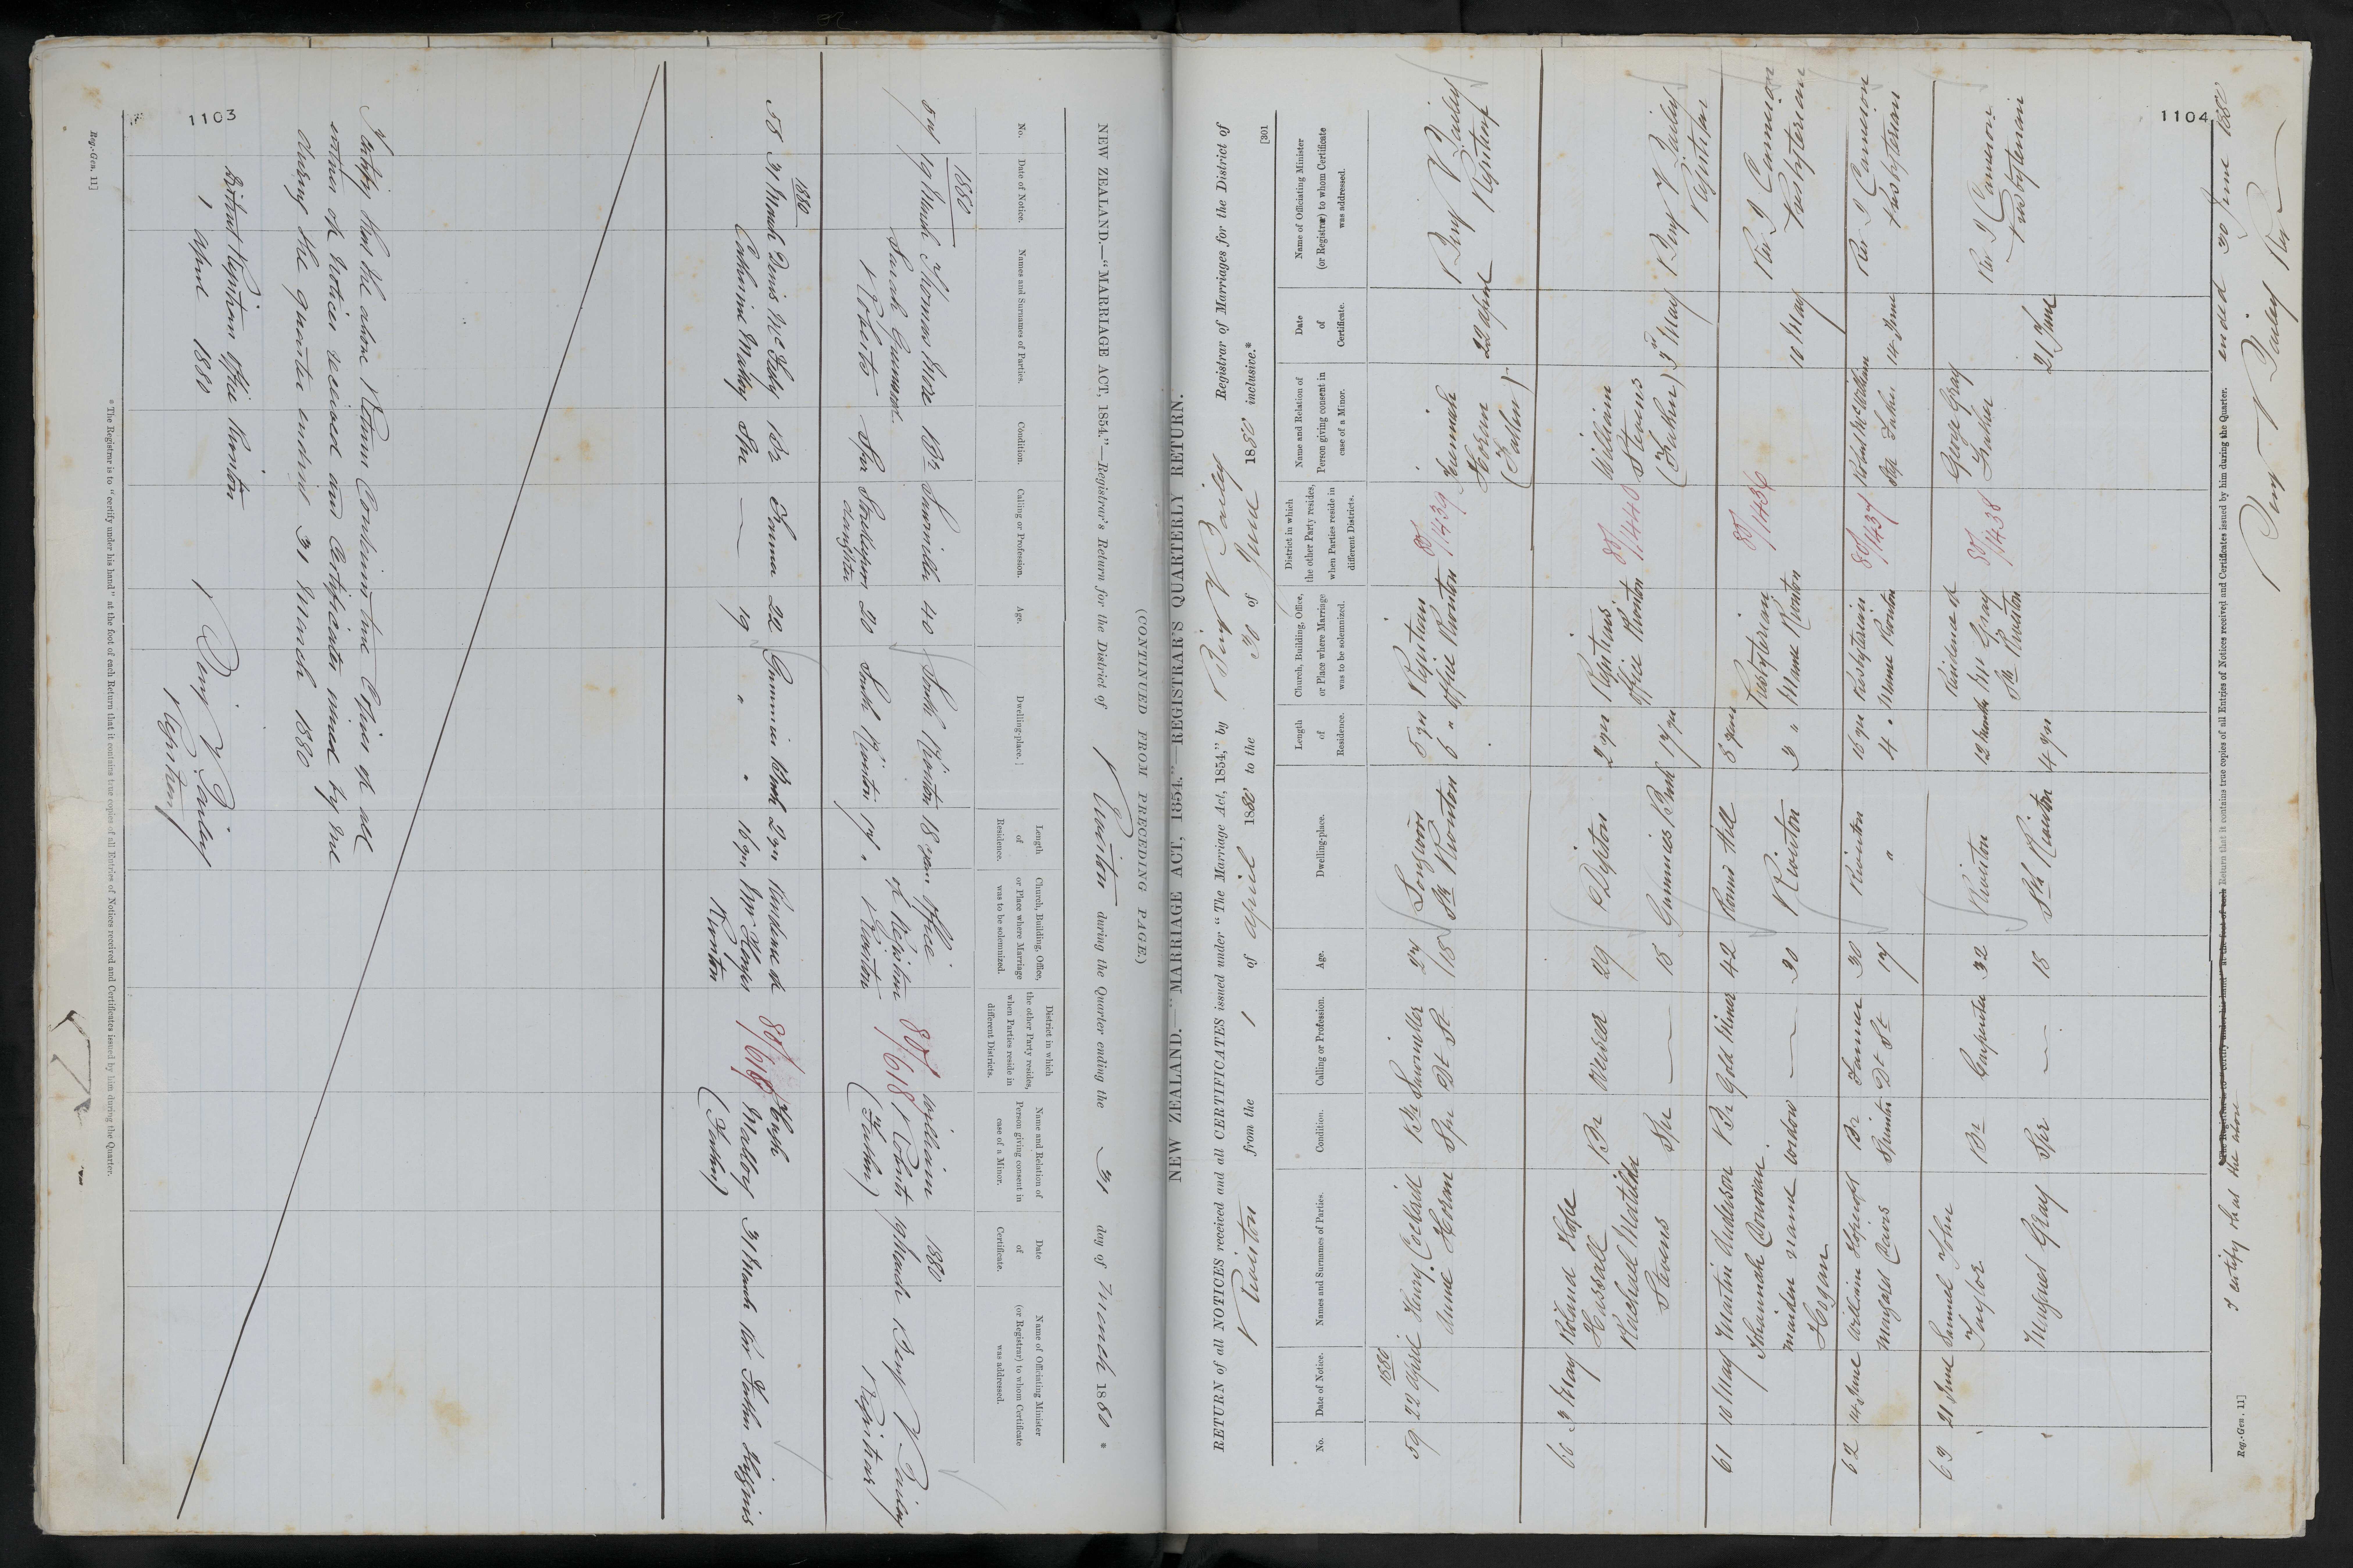 1103
(CONTINUED FROM PRECEDING PAGE.)
NEW ZEALAND.—"MARRIAGE ACT, 1854."—Registrar's Return for the District of Riverton during the Quarter ending the 31 day of March 1880 *
No.
Date of Notice.
Names and Surnames of Parties.
Condition.
Calling or Profession.
Age.
Dwelling-place.
Length of Residence.
Church, Building, Office, or Place where Marriage was to be solemnized.
District in which the other Party resides, when Parties reside in different Districts.
Name and Relation of Person giving consent in case of a Minor.
Date of Certificate.
Name of Officiating Minister (or Registrar) to whom Certificate was addressed.
1880
57 19 March Thomas More Br Sawmiller 40 South Riverton 18 years Office 80/618 William 1880
Sarah of Registrar Roberts 19 March Benj V Bailey
Roberts Spr daughter 20 South Riverton 17 " Riverton (Father) Registrar
1880
58 31 March Denis Mc Br Farmer 22 Gummies Bush 2 yrs Residence of 80/616 Hugh
Catherine Malloy Spr — 19 " " 16 yrs Mr Riverton Malloy 31 March Rev Father
(Father)
I certify that the above Return Contains true Copies of all
entries of Notices received and Certificates issued by me
during the quarter ending 31 March 1880
District Registrars Office Riverton
1 April 1880
Benj V Bailey
Registrar
* The Registrar is to "certify under his hand" at the foot of each Return that it contains true copies of all Entries of Notices received and Certificates issued by him during the Quarter.
Reg.-Gen. 11]
1104
[301
NEW ZEALAND.—"MARRIAGE ACT, 1854."—REGISTRAR'S QUARTERLY RETURN.
RETURN of all NOTICES received and all CERTIFICATES issued under "The Marriage Act, 1854," by Benj V Bailey Registrar of Marriages for the District of
Riverton from the 1 of April 1880 to the 30 of June 1880 inclusive.*
No.
Date of Notice.
Names and Surnames of Parties.
Condition.
Calling or Profession.
Age.
Dwelling-place.
Length of Residence.
Church, Building, Office, or Place where Marriage was to be solemnized.
District in which the other Party resides, when Parties reside in different Districts.
Name and Relation of Person giving consent in case of a Minor.
Date of Certificate.
Name of Officiating Minister (or Registrar) to whom Certificate was addressed.
1880
59 22 April Henry Br Sawmiller 27 Longwood 5 yrs Registrars 80/1439 22 April Benj V Bailey
Annie Spr 18 Sth Riverton 6 " Office Riverton (Father) Registrar
60 3 May Roland Hope Br 29 Riverton 2 yrs Registrars 80/1440 William
Hassall Office Riverton Stevens
Rachael Matilda Spr — 18 Gummies Bush 17 yrs (Father) 3 May Benj V Bailey
Stevens Registrar
61 10 May Martin Anderson Br Gold Miner 42 Round Hill 8 years Presbyterian 80/1436 Rev J Cameron
Johannah widow — 30 Riverton 3 " Manse Riverton 10 May Presbyterian
maiden name
Hogan
62 14 June William Br Farmer 30 Riverton 16 yrs Presbyterian 80/1437 Robert McWilliam Rev J Cameron
Margaret Cairs Spinster 17 " 4 " Manse Riverton Step Father 14 June Presbyterian
63 21 June Samuel John Br Carpenter 32 Riverton 12 months Residence of 80/1438 George Gray Rev J Cameron
Taylor Mr Gray Father Presbyterian
" Margaret Gray Spr — 18 Sth Riverton 4 yrs Sth Riverton 21 June
* The Registrar is to "certify under his hand" at the foot of each Return that it contains true copies of all Entries of Notices received and Certificates issued by him during the Quarter.
I certify that the above
ended 30 June 1880
Benj V Bailey
Reg.-Gen. 11]